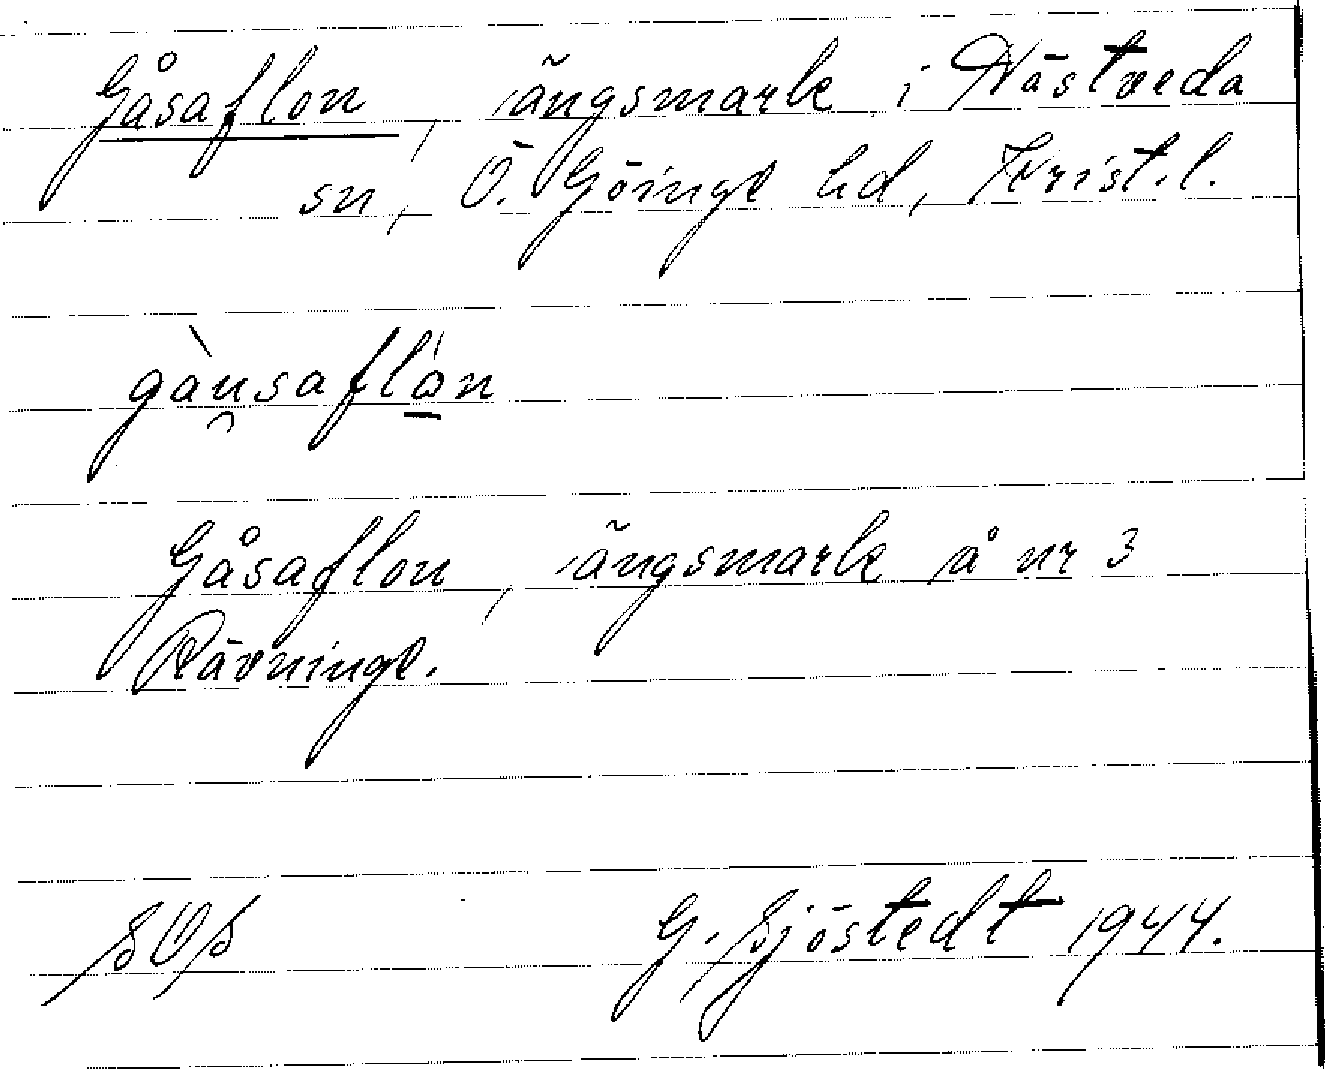 Gåsaflon, ängsmark i Nästveda
sn, Ö. Göinge hd, Krist.l.
gàu̯saflo̱n
Gåsaflon, ängsmark å nr 3
Rävninge.
SOS
G. Sjöstedt 1944.